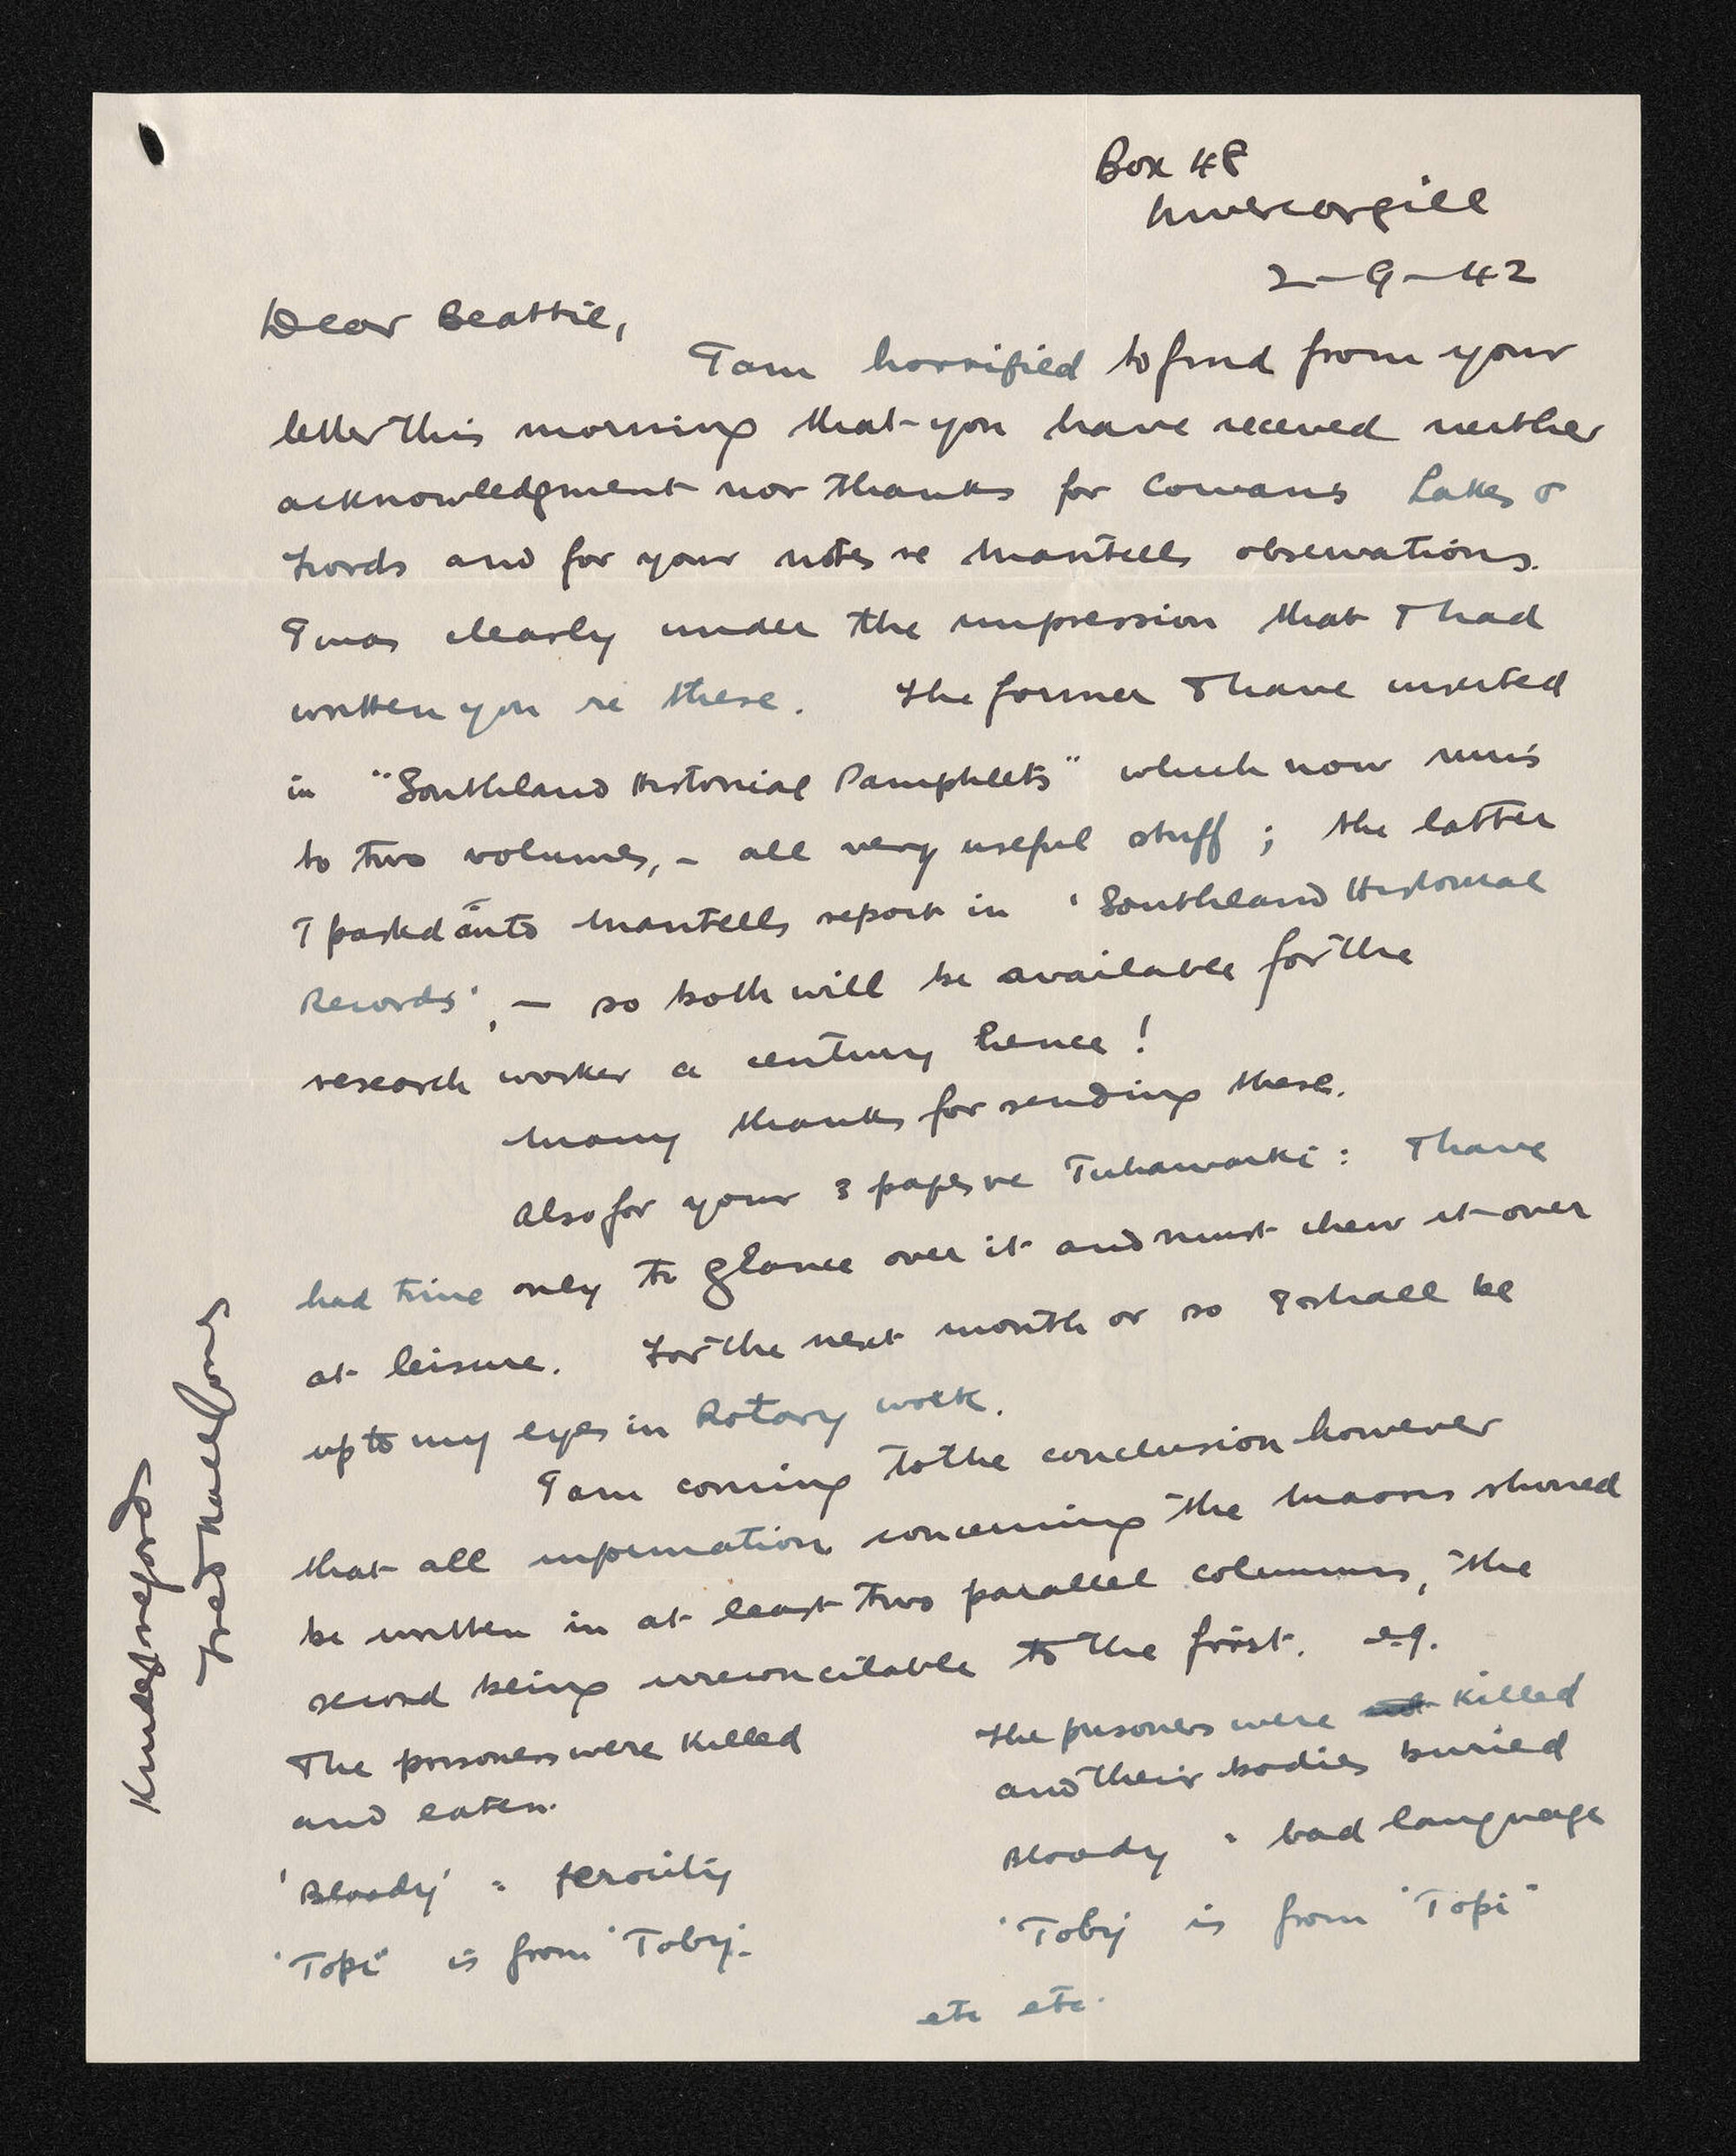 Box 48
Invercargill
2-9-42
Dear Beattie,
I am horrified to find from your
letter this morning that you have received neither
acknowledgment nor thanks for Cowans Lakes &
Fiords and for your notes re Mantells observations.
I was clearly under the impression that I had
written you re these. The former I have inserted
in "Southland Historical Pamphlets" which now runs
to two volumes, - all very useful stuff ; the latter
I pasted into Mantells report in 'Southland Historical
Records', - so both will be available for the
research worker a century hence !
Many thanks for sending these.
Also for your 3 pages re Tuhawaiki : I have
had time only to glance over it and must chew it over
at leisure. For the next month or so I shall be
up to my eyes in Rotary work.
I am coming to the conclusion however
that all information concerning the Maoris should
be written in at least two parallel columns, the
second being irreconcilable to the first. e.g.
The prisoners were killed
and eaten.
'Bloody' = ferocity
'Topi' is from 'Toby'.
The prisoners were killed
and their bodies buried
Bloody = bad language
'Toby' is from 'Topi'
etc etc.
Kindest regards
Fred Hall Jones